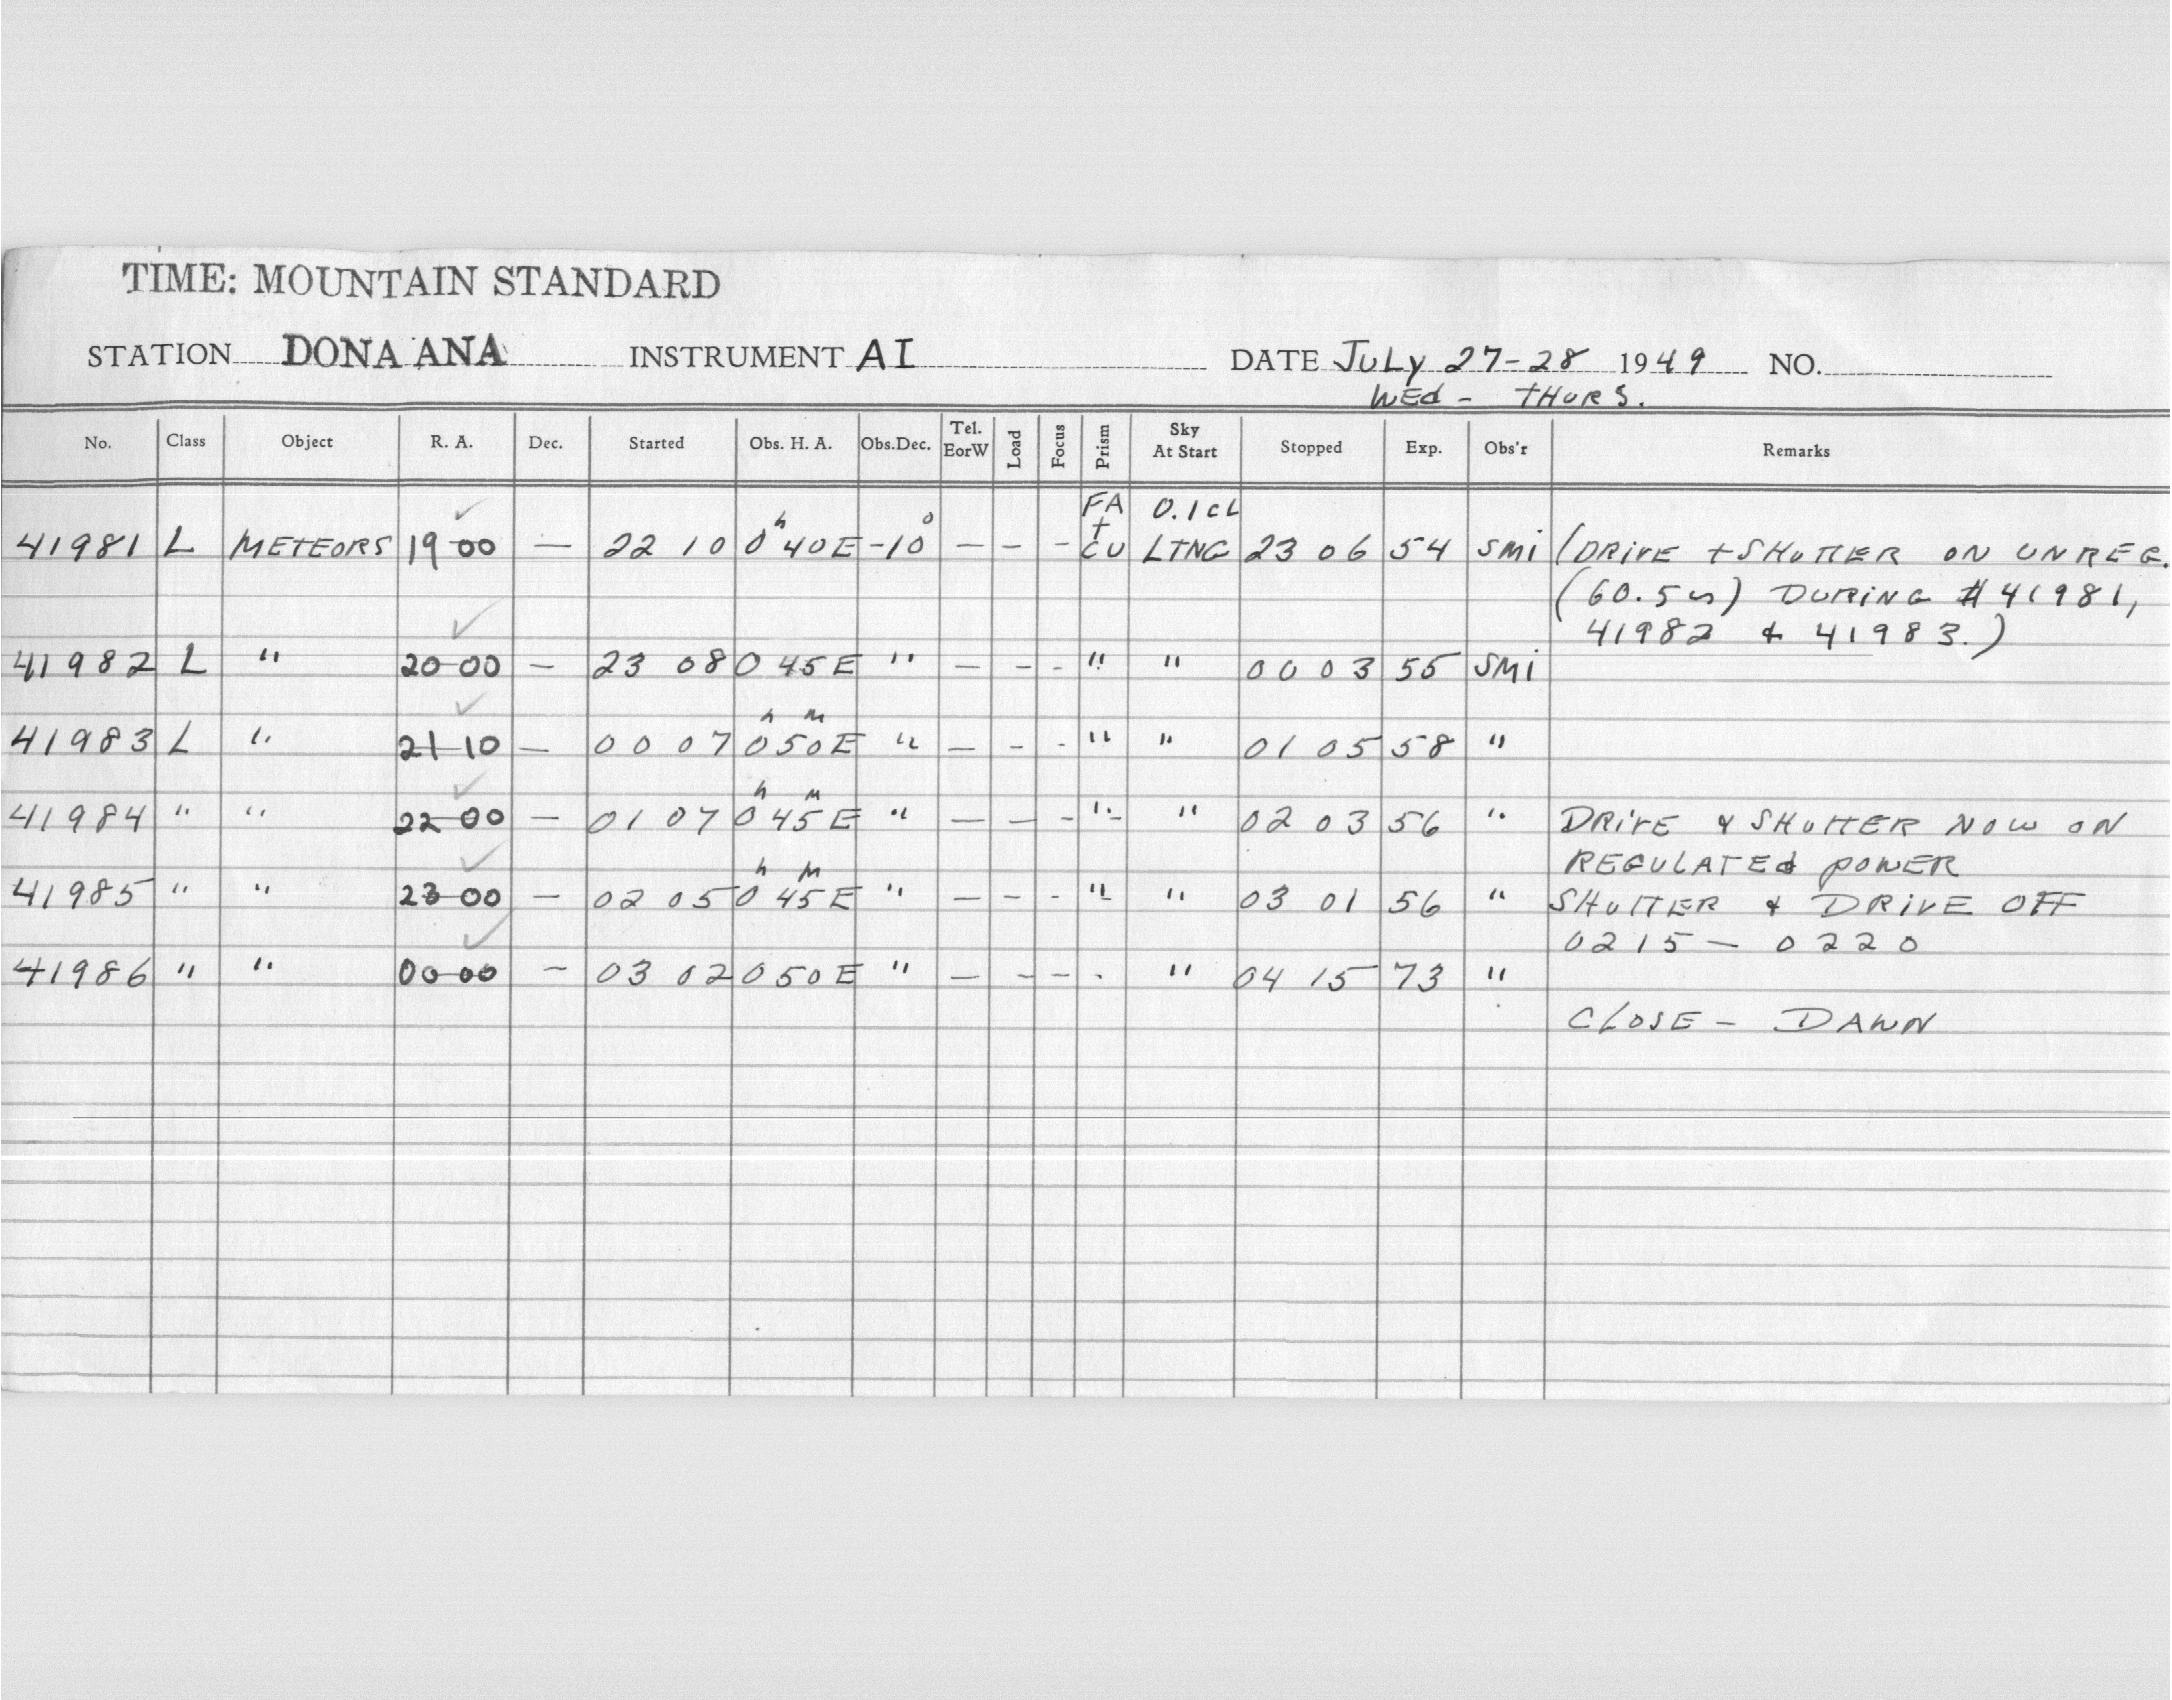 TIME: MOUNTAIN STANDARD
STATION DONA ANA INSTRUMENT AI DATE JULY 27-28 1949 NO.
WEd - THURS.
No. Class Object R. A. Dec. Started Obs. H. A. Obs.Dec. Tel. EorW Load Focus Prism Sky At Start Stopped Exp. Obs'r Remarks
FA 0.1 cL
41981 L METEORS 19 00 — 22 10 0ʰ 40 E -10° — – – + CU LTNG 23 06 54 SMi (DRIVE + SHUTTER ON UNREG.
(60.5 ~) DURING # 41981,
41982 & 41983.)
41982 L " 20 00 — 23 08 0 45 E " — – – " " 00 03 55 SMi
41983 L " 21 10 — 00 07 0ʰ 50ᴹ E " — – – " " 01 05 58 "
41984 " " 22 00 — 01 07 0ʰ 45ᴹ E " — — – " " 02 03 56 " DRIVE & SHUTTER NOW ON
REGULATEd POWER
41985 " " 23 00 — 02 05 0ʰ 45ᴹ E " — – – " " 03 01 56 " SHUTTER & DRIVE OFF
0215 — 0220
41986 " " 00 00 — 03 02 0 50 E " — – – " 04 15 73 "
CLOSE - DAWN